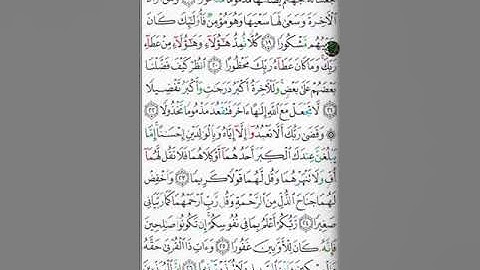 جهنم يصلها مذموما
الآخرة وسعى لها سعيها وهو مؤمن فأولئك كان
سعيهم مشكورا ١٩ كلا نمد هؤلاء وهؤلاء من عطاء
ربك وما كان عطاء ربك محظورا ٢٠ انظر كيف فضلنا
بعضهم على بعض وللآخرة أكبر درجت وأكبر تفضيلا
٢١ لا تجعل مع الله إلها ءاخر فتقعد مذموما مخذولا ٢٢
۞ وقضى ربك ألا تعبدوا إلا إياه وبالولدين إحسنا إما
يبلغن عندك الكبر أحدهما أو كلاهما فلا تقل لهما
أف ولا تنهرهما وقل لهما قولا كريما ٢٣ واخفض
لهما جناح الذل من الرحمة وقل رب ارحمهما كما ربياني
صغيرا ٢٤ ربكم أعلم بما في نفوسكم إن تكونوا صلحين
فإنه كان للأوبين غفورا ٢٥ وءات ذا القربى حقه